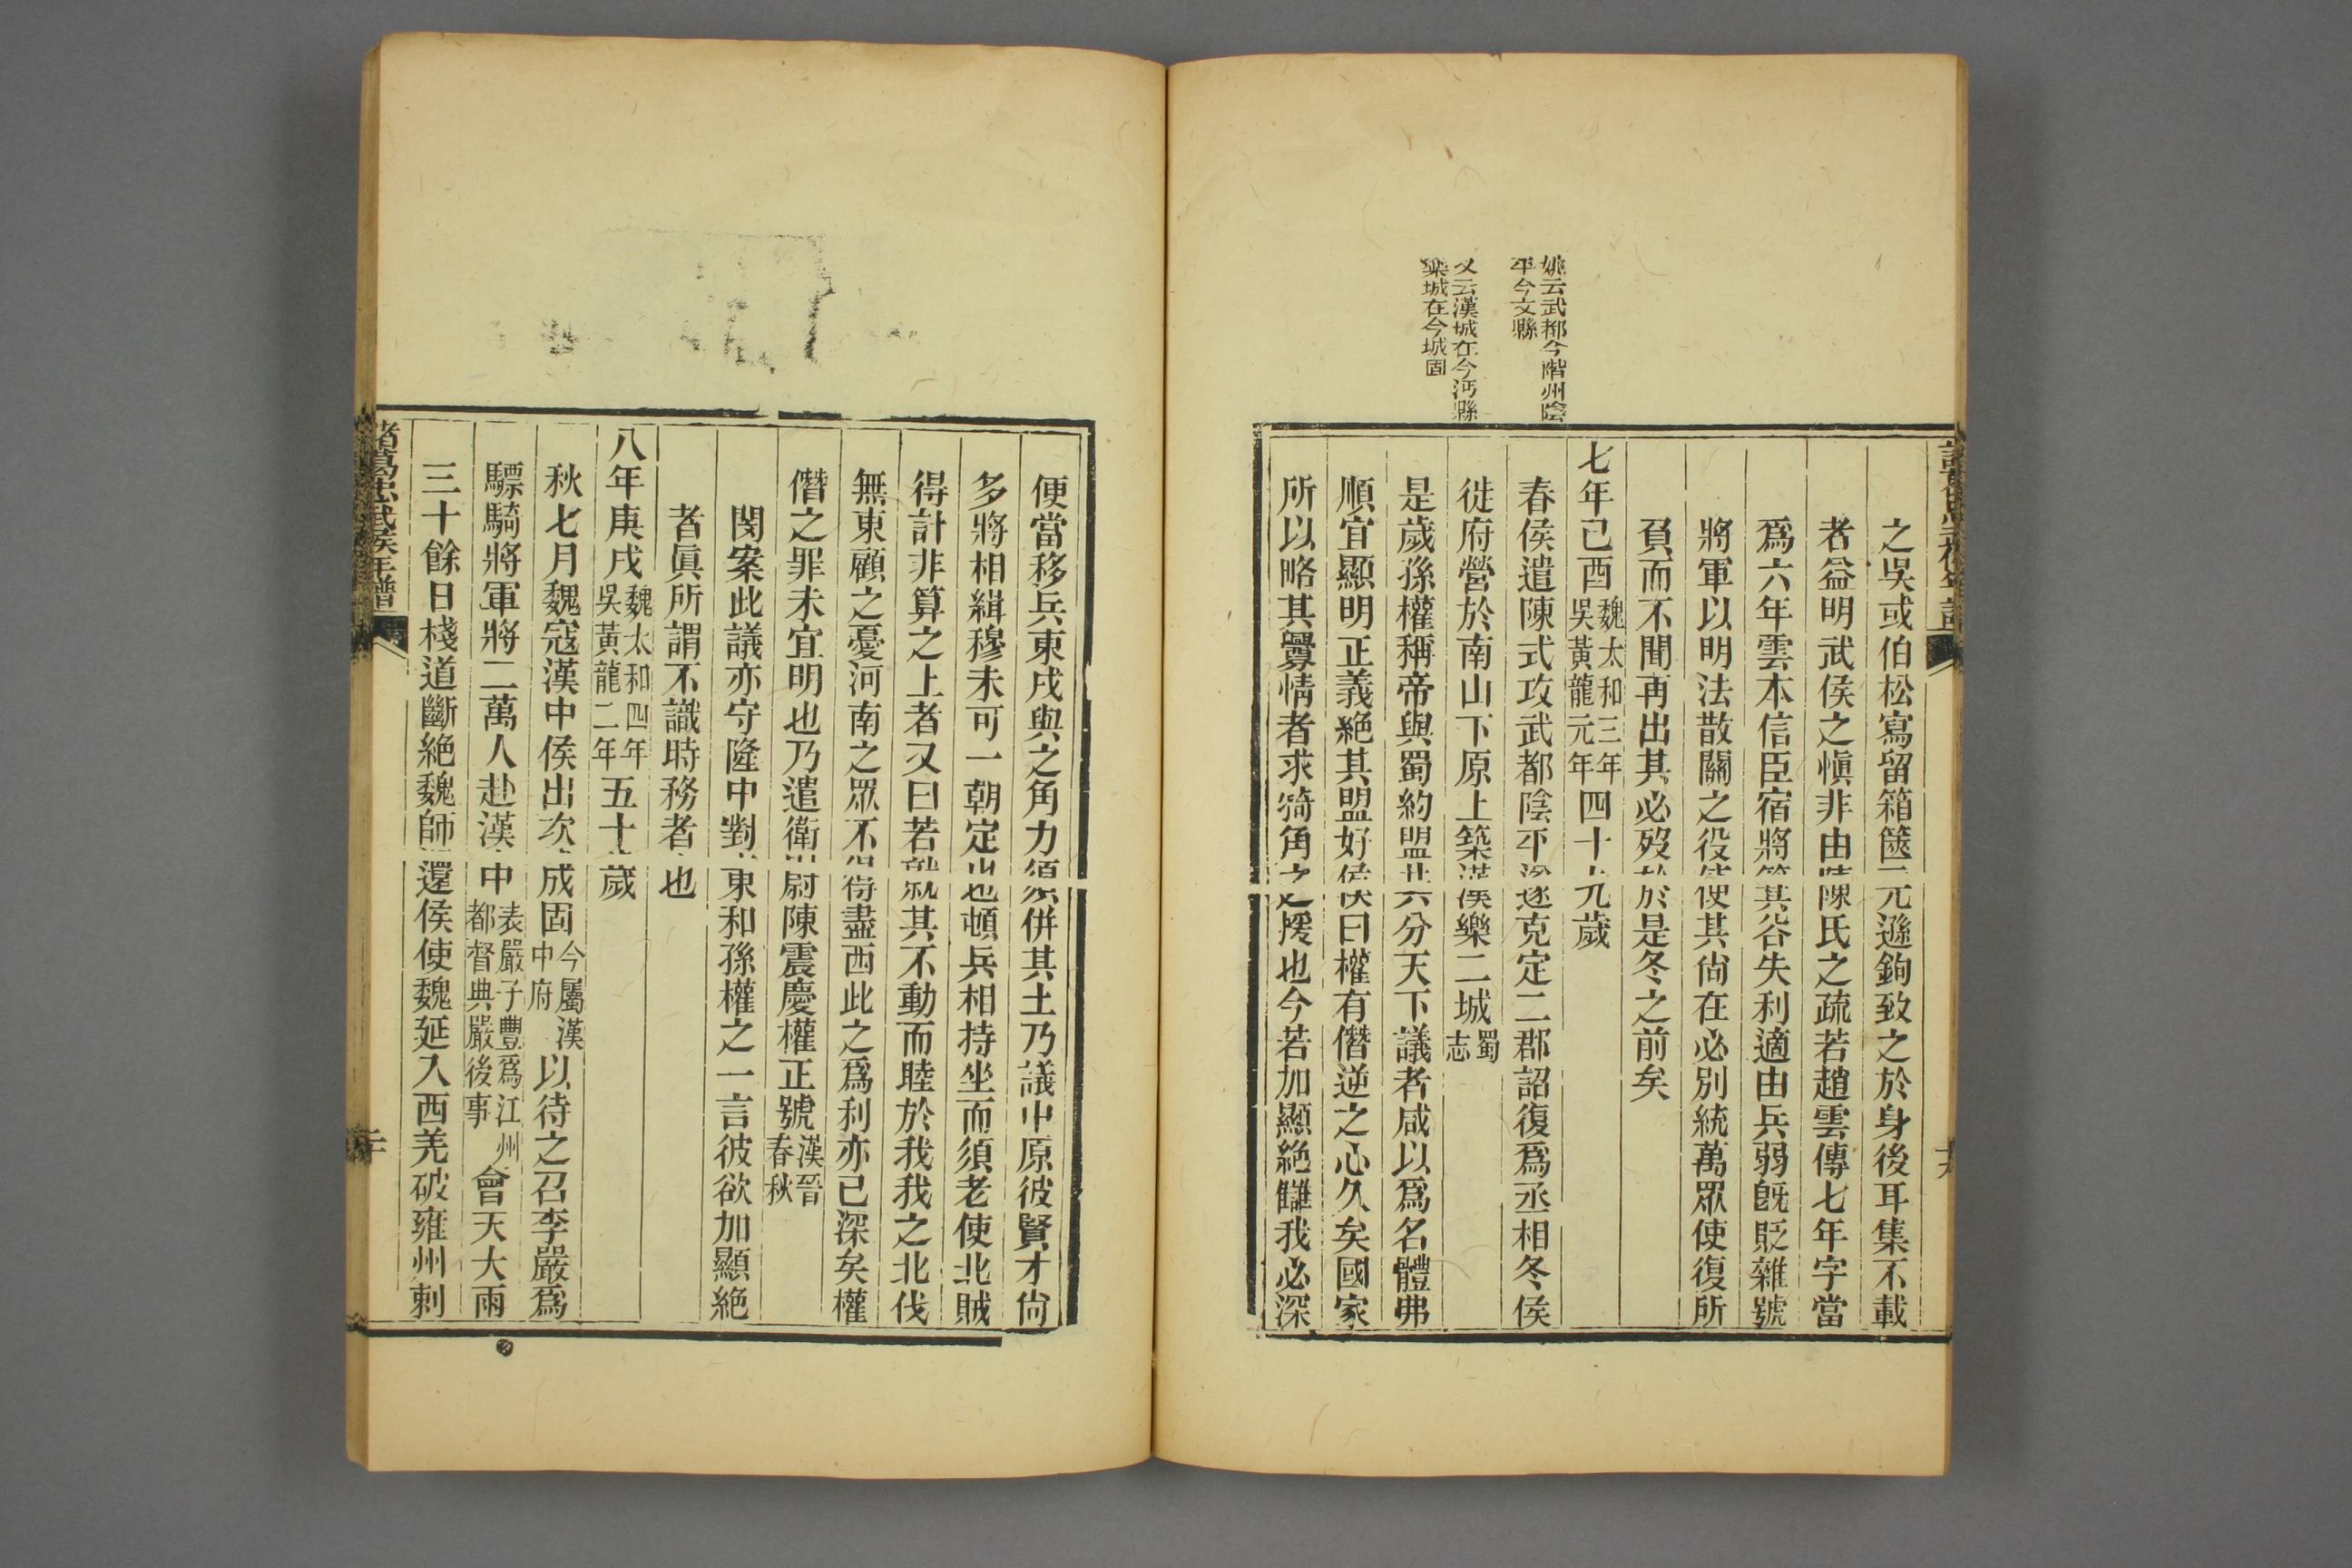 姚云武都今階州陰
平今文縣
又云漢城在今沔縣
樂城在今城固
之吳或伯松寫留箱篋元遜鉤致之於身後耳集不載
者益明武侯之愼非由陳氏之疏若趙雲傳七年字當
爲六年雲本信臣宿將箕谷失利適由兵弱旣貶雜號
將軍以明法散關之役使其尙在必別統萬眾使復所
負而不聞再出其必歿於是冬之前矣
七年已酉魏太和三年吳黃龍元年四十九歲
春侯遣陳式攻武都陰平遂克定二郡詔復爲丞相冬侯
徙府營於南山下原上築漢樂二城蜀志
是歲孫權稱帝與蜀約盟共分天下議者咸以爲名體弗
順宜顯明正義絕其盟好侯曰權有僭逆之心久矣國家
所以略其釁情者求犄角之援也今若加顯絕讎我必深
便當移兵東戍與之角力須併其土乃議中原彼賢才尙
多將相緝穆未可一朝定也頓兵相持坐而須老使北賊
得計非算之上者又曰若就其不動而睦於我我之北伐
無東顧之憂河南之眾不得盡西此之爲利亦已深矣權
僭之罪未宜明也乃遣衛尉陳震慶權正號漢晉春秋
閔案此議亦守隆中對東和孫權之一言彼欲加顯絕
者眞所謂不識時務者也
八年庚戌魏太和四年吳黃龍二年五十歲
秋七月魏寇漢中侯出次成固今屬漢中府以待之召李嚴爲
驃騎將軍將二萬人赴漢中表嚴子豐爲江州都督典嚴後事會天大雨
三十餘日棧道斷絕魏師還侯使魏延入西羌破雍州刺
諸葛忠武侯年譜